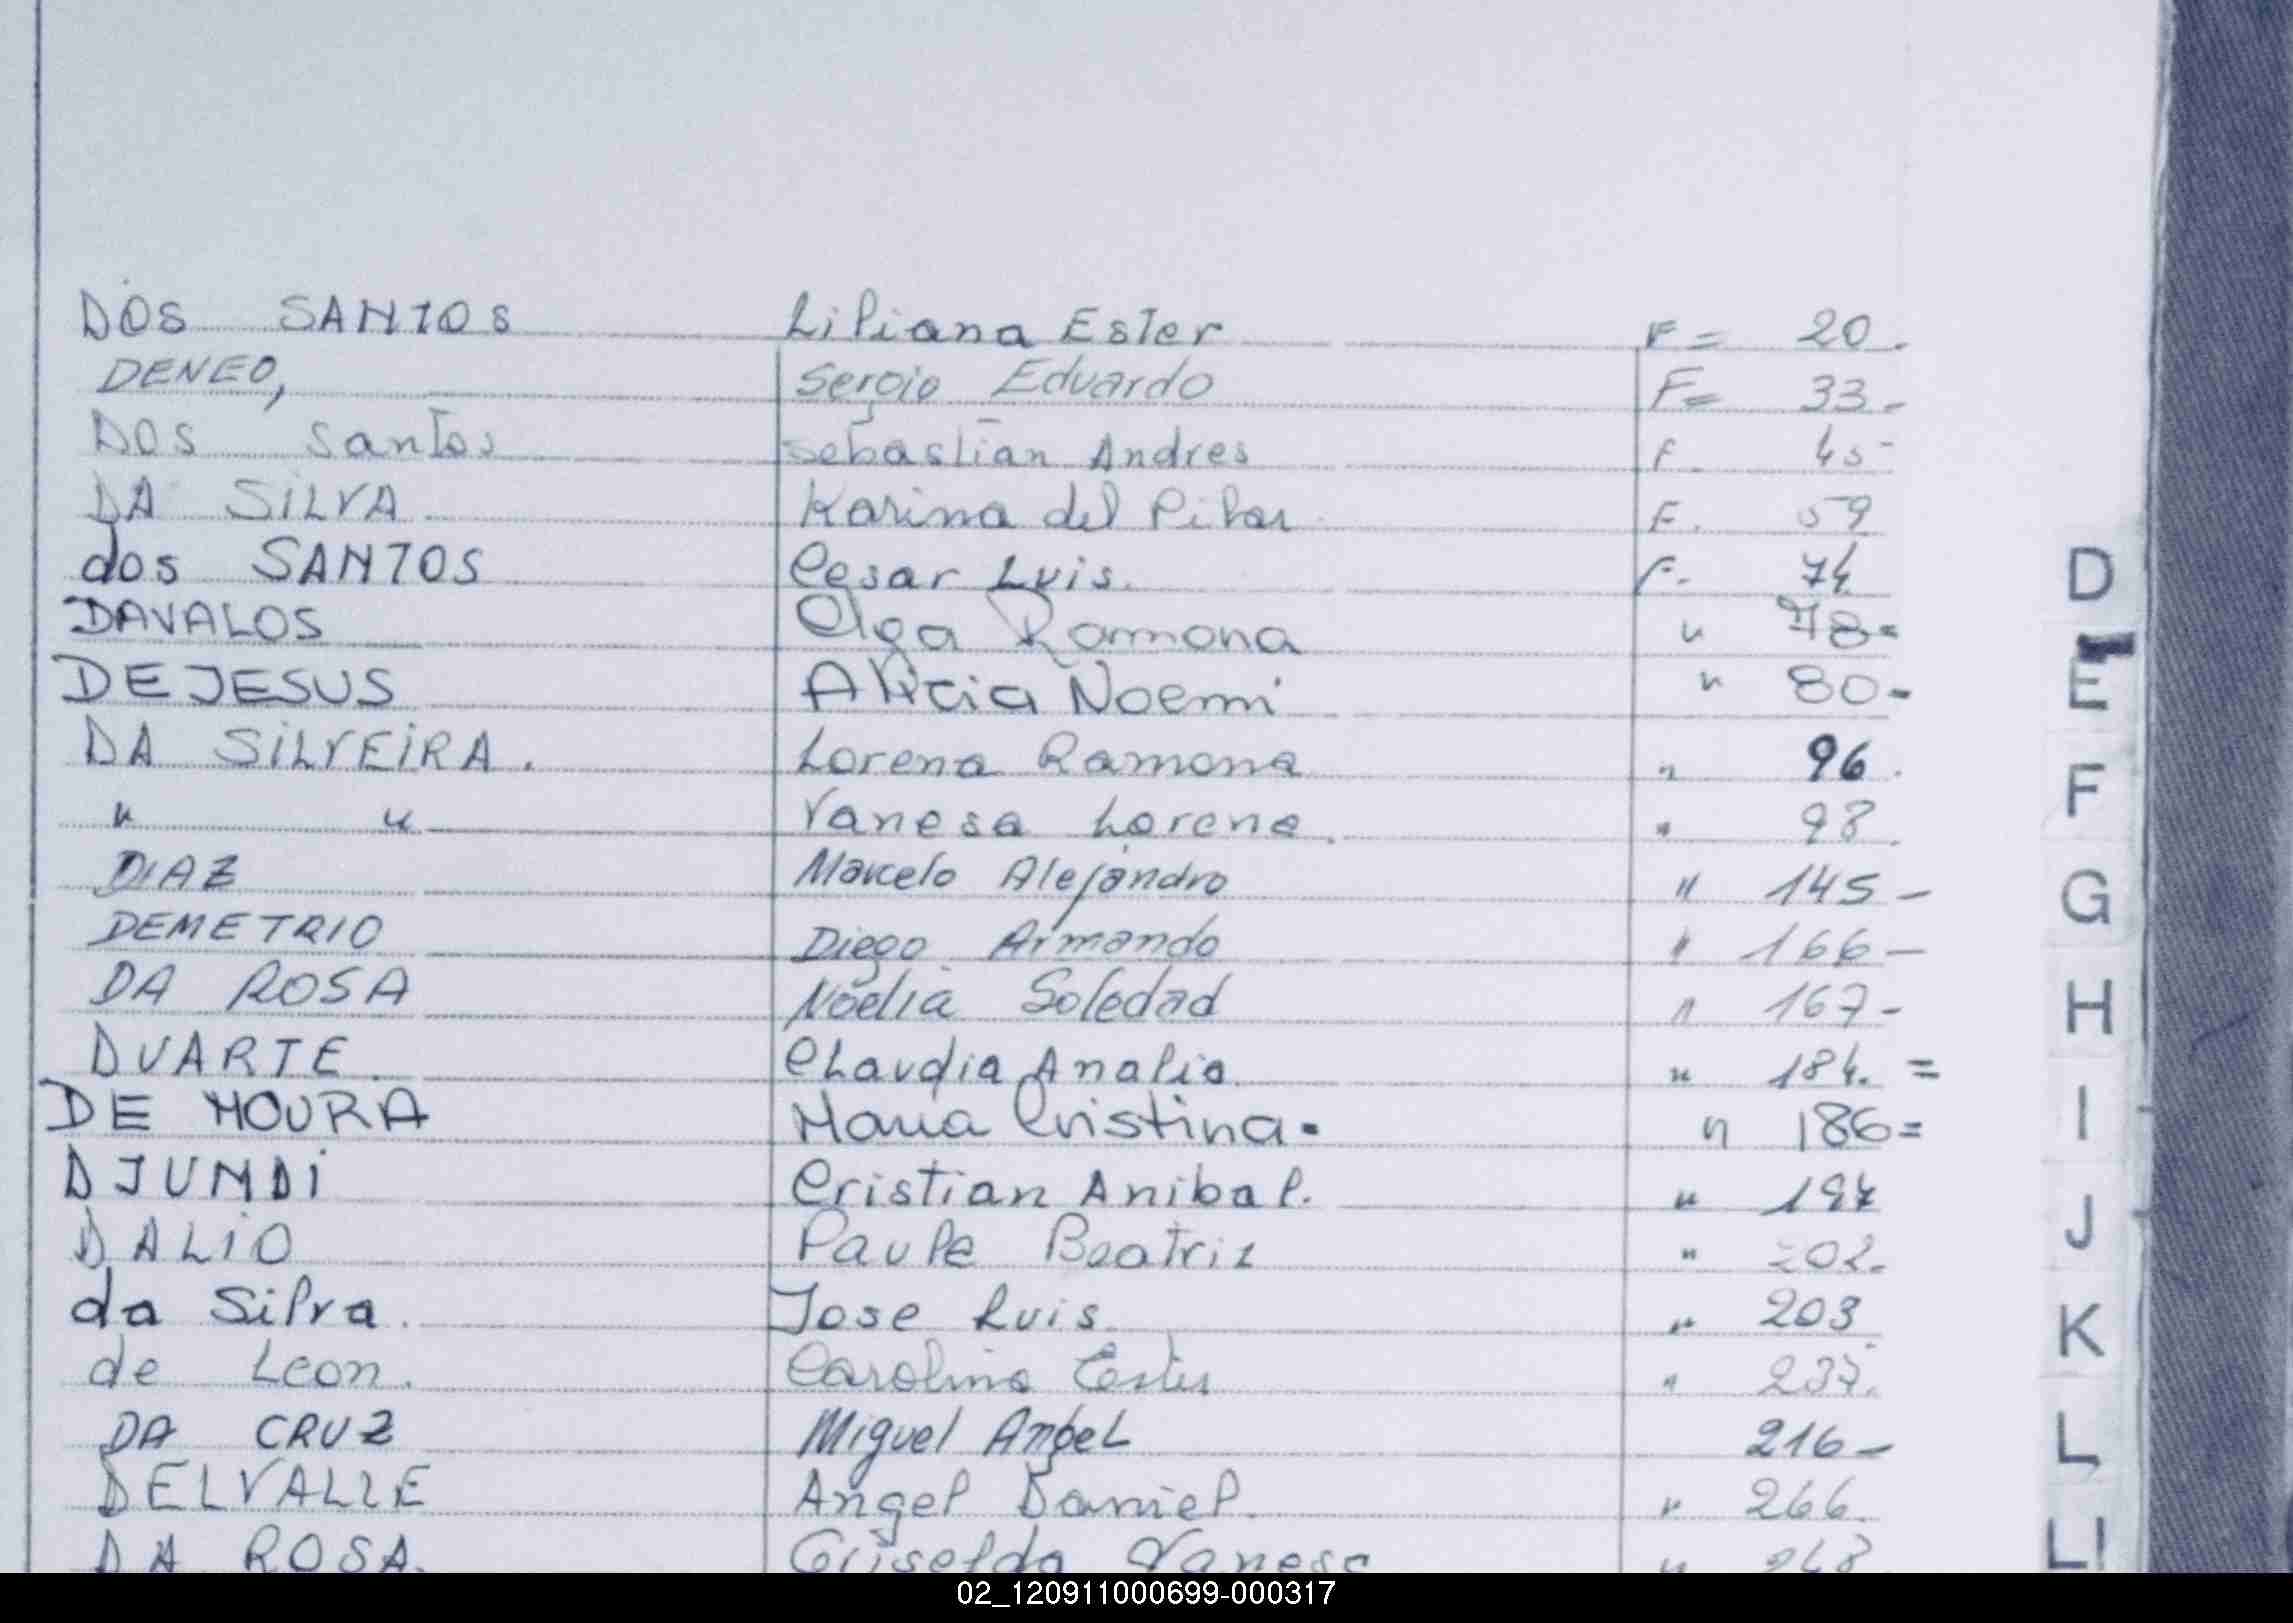 DOS SANTOS Liliana Ester F = 20.
DENEO, Sergio Eduardo F = 33-
DOS Santos Sebastian Andres F. 45-
DA SILVA Karina del Pilar F. 59
dos SANTOS Cesar Luis. F. 74
DAVALOS Olga Ramona " 78=
DE JESUS Alicia Noemi " 80-
D
E
DA SILVEIRA. Lorena Ramona " 96.
" " Vanesa Lorena. " 98.
F
DIAZ Marcelo Alejandro " 145-
G
DEMETRIO Diego Armando " 166-
DA ROSA Noelia Soledad " 167-
H
DUARTE. Claudia Analia " 184. =
DE MOURA Maria Cristina. " 186=
I
DJUNDI Cristian Anibal. "
DALIO Beatriz " 202.
J
da Silva. Jose Luis " 203
K
de Leon. Carolina Ester "
DA CRUZ Miguel Angel 216-
L
DELVALLE Angel Daniel. " 266.
DA ROSA. Griselda Vanesa "
LL
02_120911000699-000317